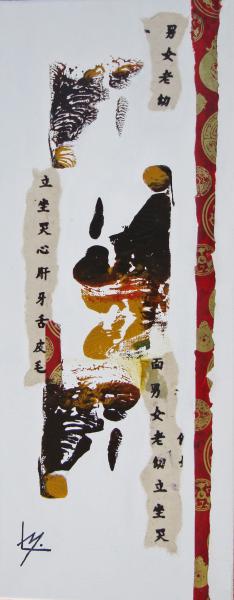 男女老幼
面男女老幼立坐哭
立坐哭心肝牙舌皮毛